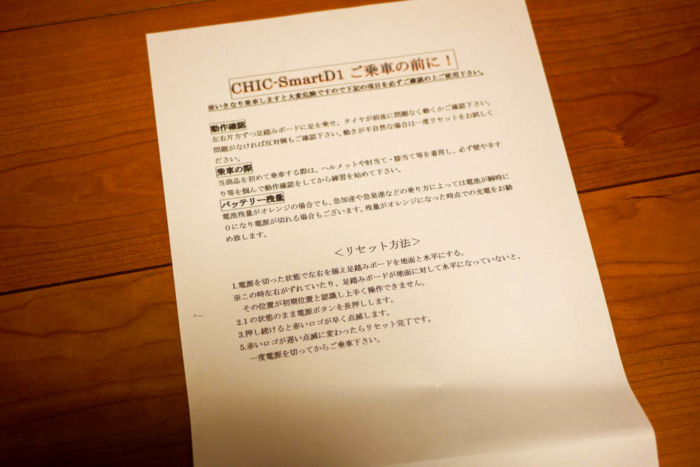 CHIC-SmartD1 ご乗車の前に！
※いきなり乗車しますと大変危険ですので下記の項目を必ずご確認の上ご使用下さい。
動作確認
左右片方ずつ足踏みボードに足を乗せ、タイヤが前後に問題なく動くかご確認下さい。
問題がなければ反対側もご確認下さい。動きが不自然な場合は一度リセットをお試しく
ださい。
乗車の際
当商品を初めて乗車する際は、ヘルメットや肘当て・膝当て等を着用し、必ず壁や手す
り等を掴んで動作確認をしてから練習を始めて下さい。
バッテリー残量
電池残量がオレンジの場合でも、急加速や急発進などの乗り方によっては電池が瞬時に
0になり電源が切れる場合もございます。残量がオレンジになった時点での充電をお勧
め致します。
＜リセット方法＞
1.電源を切った状態で左右を揃え足踏みボードを地面と水平にする。
※この時左右がずれていたり、足踏みボードが地面に対して水平になっていないと、
その位置が初期位置と認識し上手く操作できません。
2.1の状態のまま電源ボタンを長押しします。
3.押し続けると赤いロゴが早く点滅します。
5.赤いロゴが遅い点滅に変わったらリセット完了です。
一度電源を切ってからご乗車下さい。